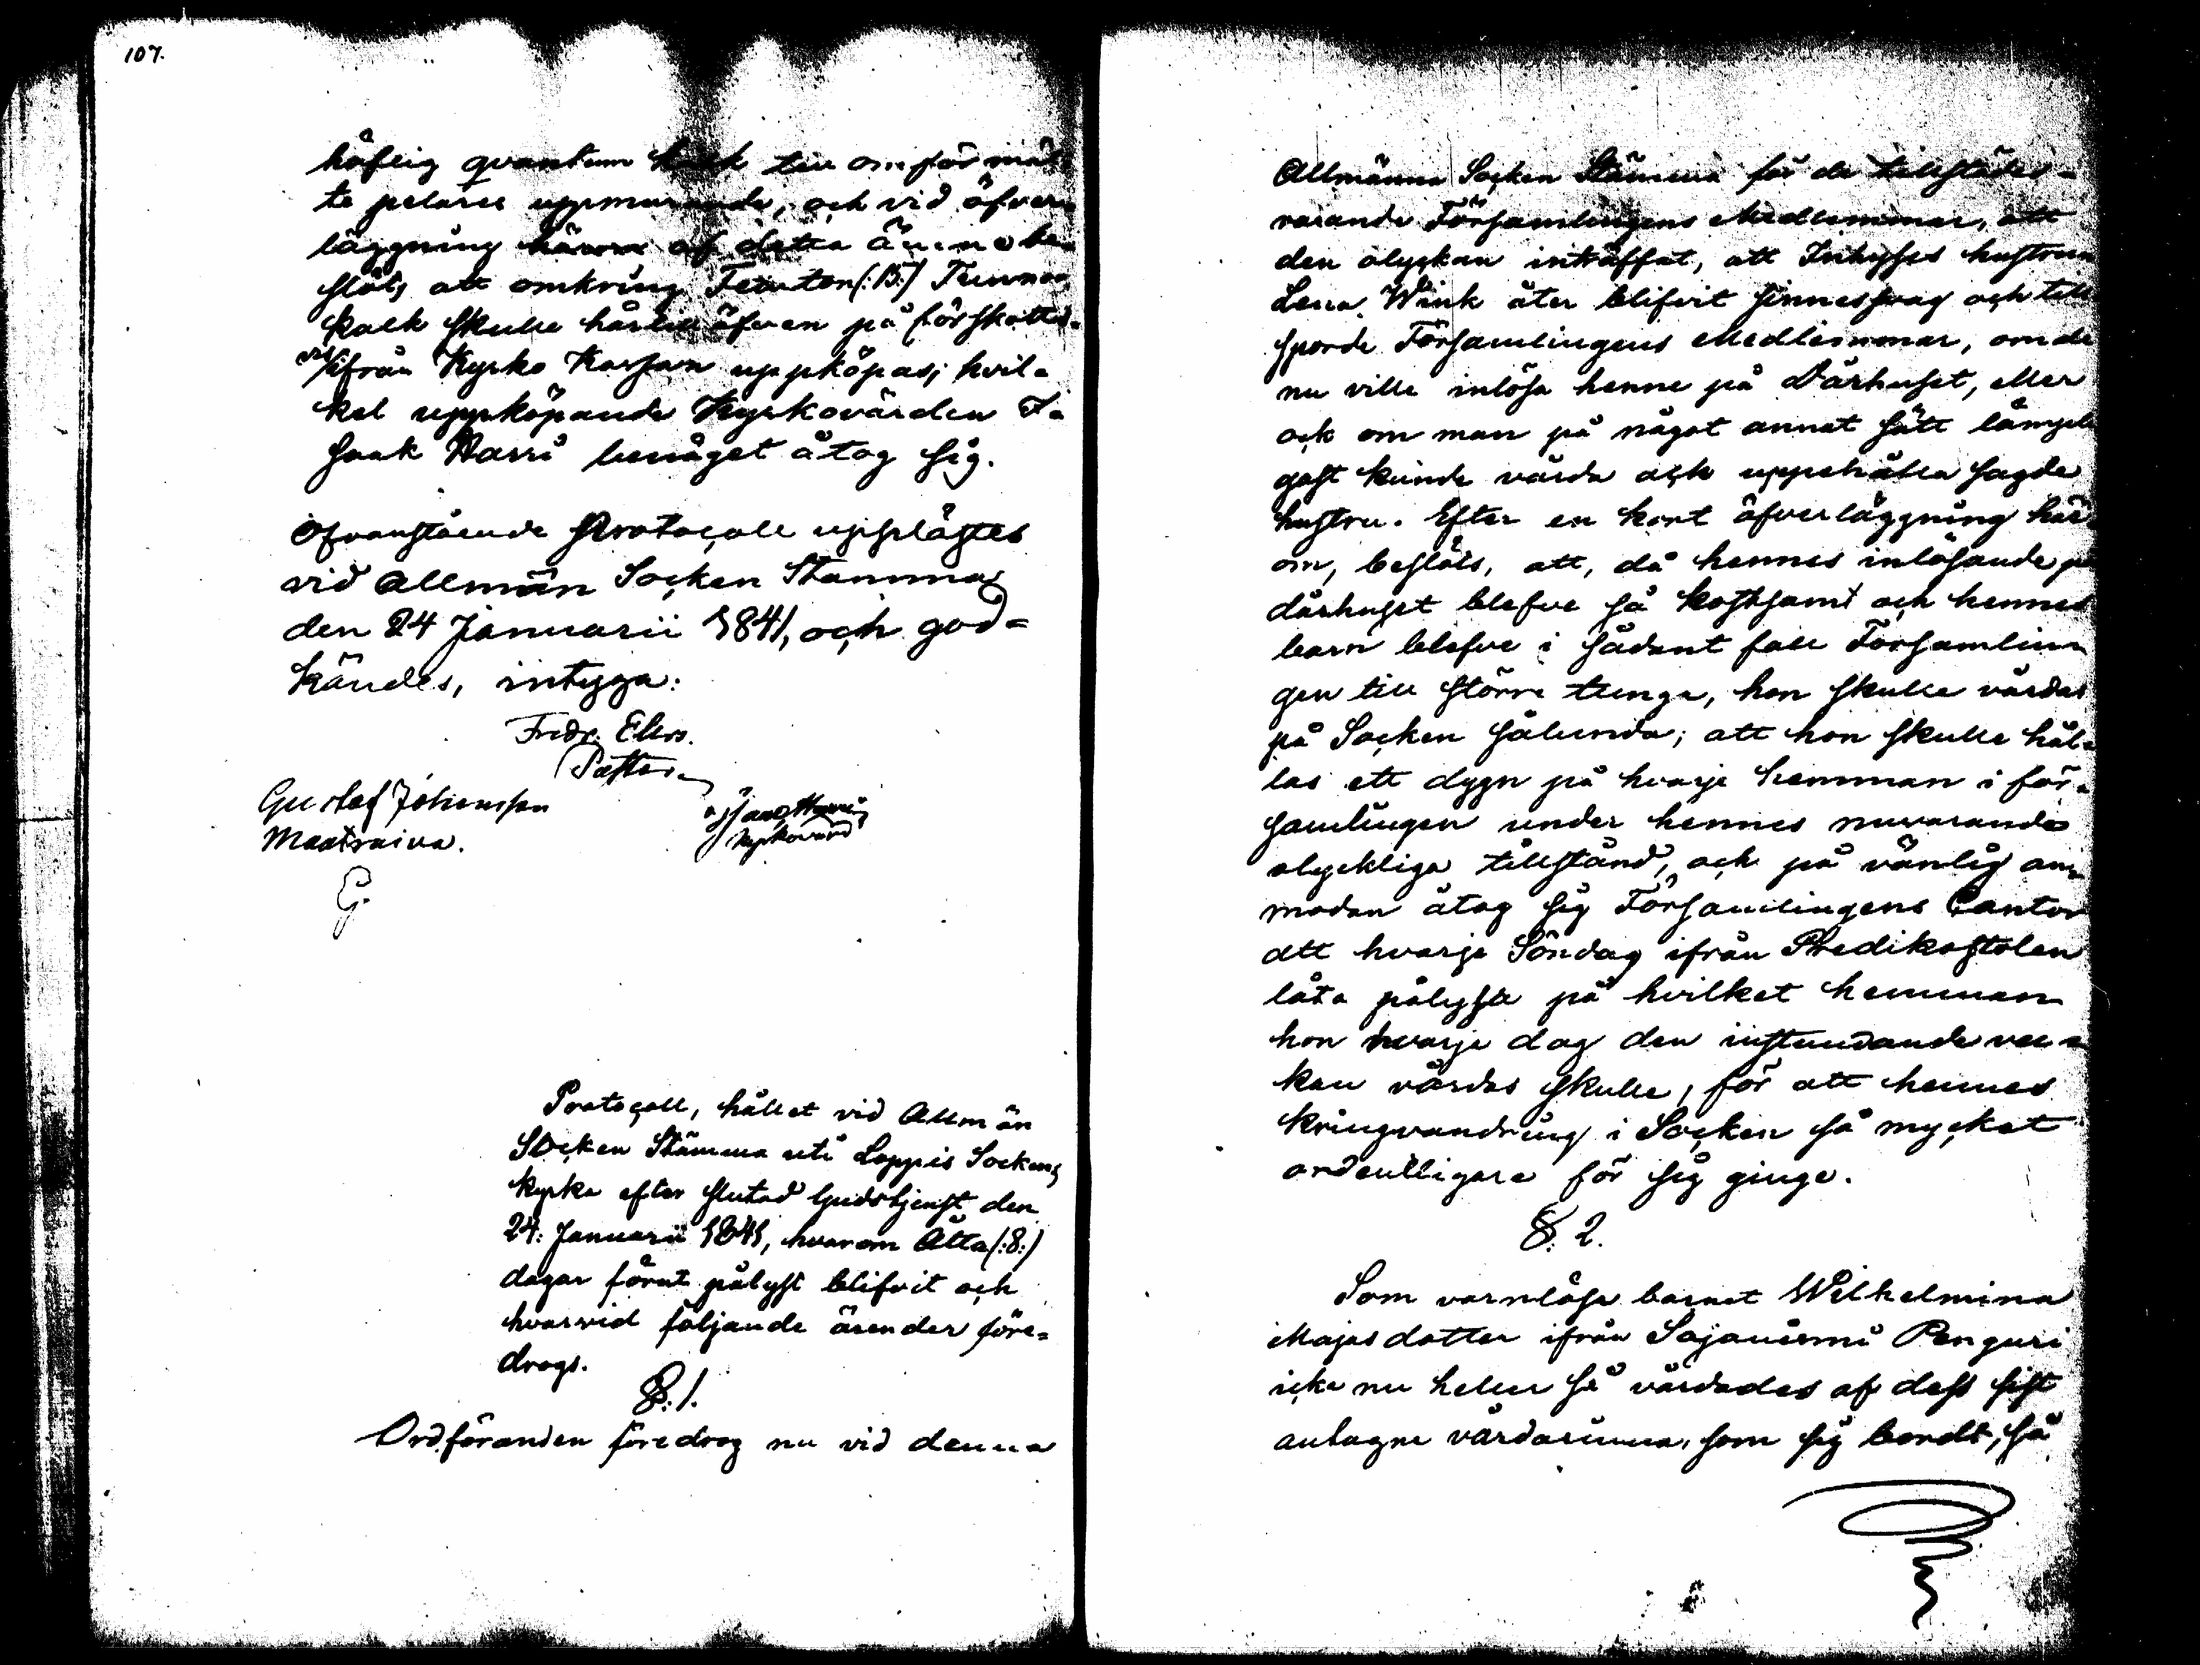 107.
höflig qvantum kalk till omförmäl-
te pelares uppmurande, och vid öfver-
läggning härom af detta ämne be-
slöts att omkring Femton (:15:) Tunnor
kalk skulle härtill äfven på förskotts-
vis ifrån Kyrko Kassan uppköpas; hvil-
ket uppköpande Kyrkovärden I-
saak Harri benäget åtog sig.
Ofvanstående Protocoll upplästes
vid Allmän Socken Stämma
den 24 Januarii 1841, och god-
kändes, intyga:
Fredr. Elers.
Pastor
Gustaf Johansson
Maatraiva.
Isaac Harri
kyrkovärd
G.
Protocoll, hållet vid Allmän
Socken Stämma uti Loppis Sockens
kyrka efter slutad Gudstjenst den
24: Januarii 1841, hvarom Åtta (:8:)
dagar förut pålyst blifvit och
hvarvid följande ärender före-
drogs.
§. 1.
Ordföranden föredrog nu vid denna
Allmänna Socken Stämma för de tillstädes-
varande Församlingens Medlemmar, att
den olyckan inträffat, att Inhyses hustrun
Lena Wink åter blifvit sinnessvag och till-
sporde Församlingens Medlemmar, om de
nu ville inlösa henne på Dårhuset, eller
ock om man på något annat sätt lämpli-
gast kunde vårda och uppehålla sagde
hustru. Efter en kort öfverläggning här-
om, beslöts, att, då hennes inlösande på
dårhuset blefve så kostsamt och hennes
barn blefve i sådant fall Församlin-
gen till större tunga, hon skulle vårdas
på Socken sålunda; att hon skulle hål-
las ett dygn på hvarje hemman i för-
samlingen under hennes nuvarande
olyckliga tillstånd, och på vänlig an-
modan åtog sig Församlingens Cantor
att hvarje Söndag ifrån Predikostolen
låta pålysa på hvilket hemman
hon hvarje dag den instundande vec-
kan vårdas skulle, för att hennes
kringvandring i Socken så mycket
ordentligare för sig ginge.
§. 2.
Som varnlösa barnet Wilhelmina
Majasdotter ifrån Sajaniemi Penguri
icke nu heller så vårdades af dess sist
antagne vårdarinna, som sig bordt, så